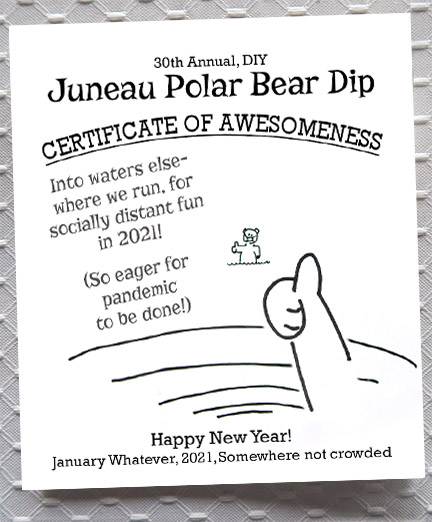 30th Annual, DIY
Juneau Polar Bear Dip
CERTIFICATE OF AWESOMENESS
Into waters else-
where we run, for
socially distant fun
in 2021!
(So eager for
pandemic
to be done!)
Happy New Year!
January Whatever, 2021, Somewhere not crowded